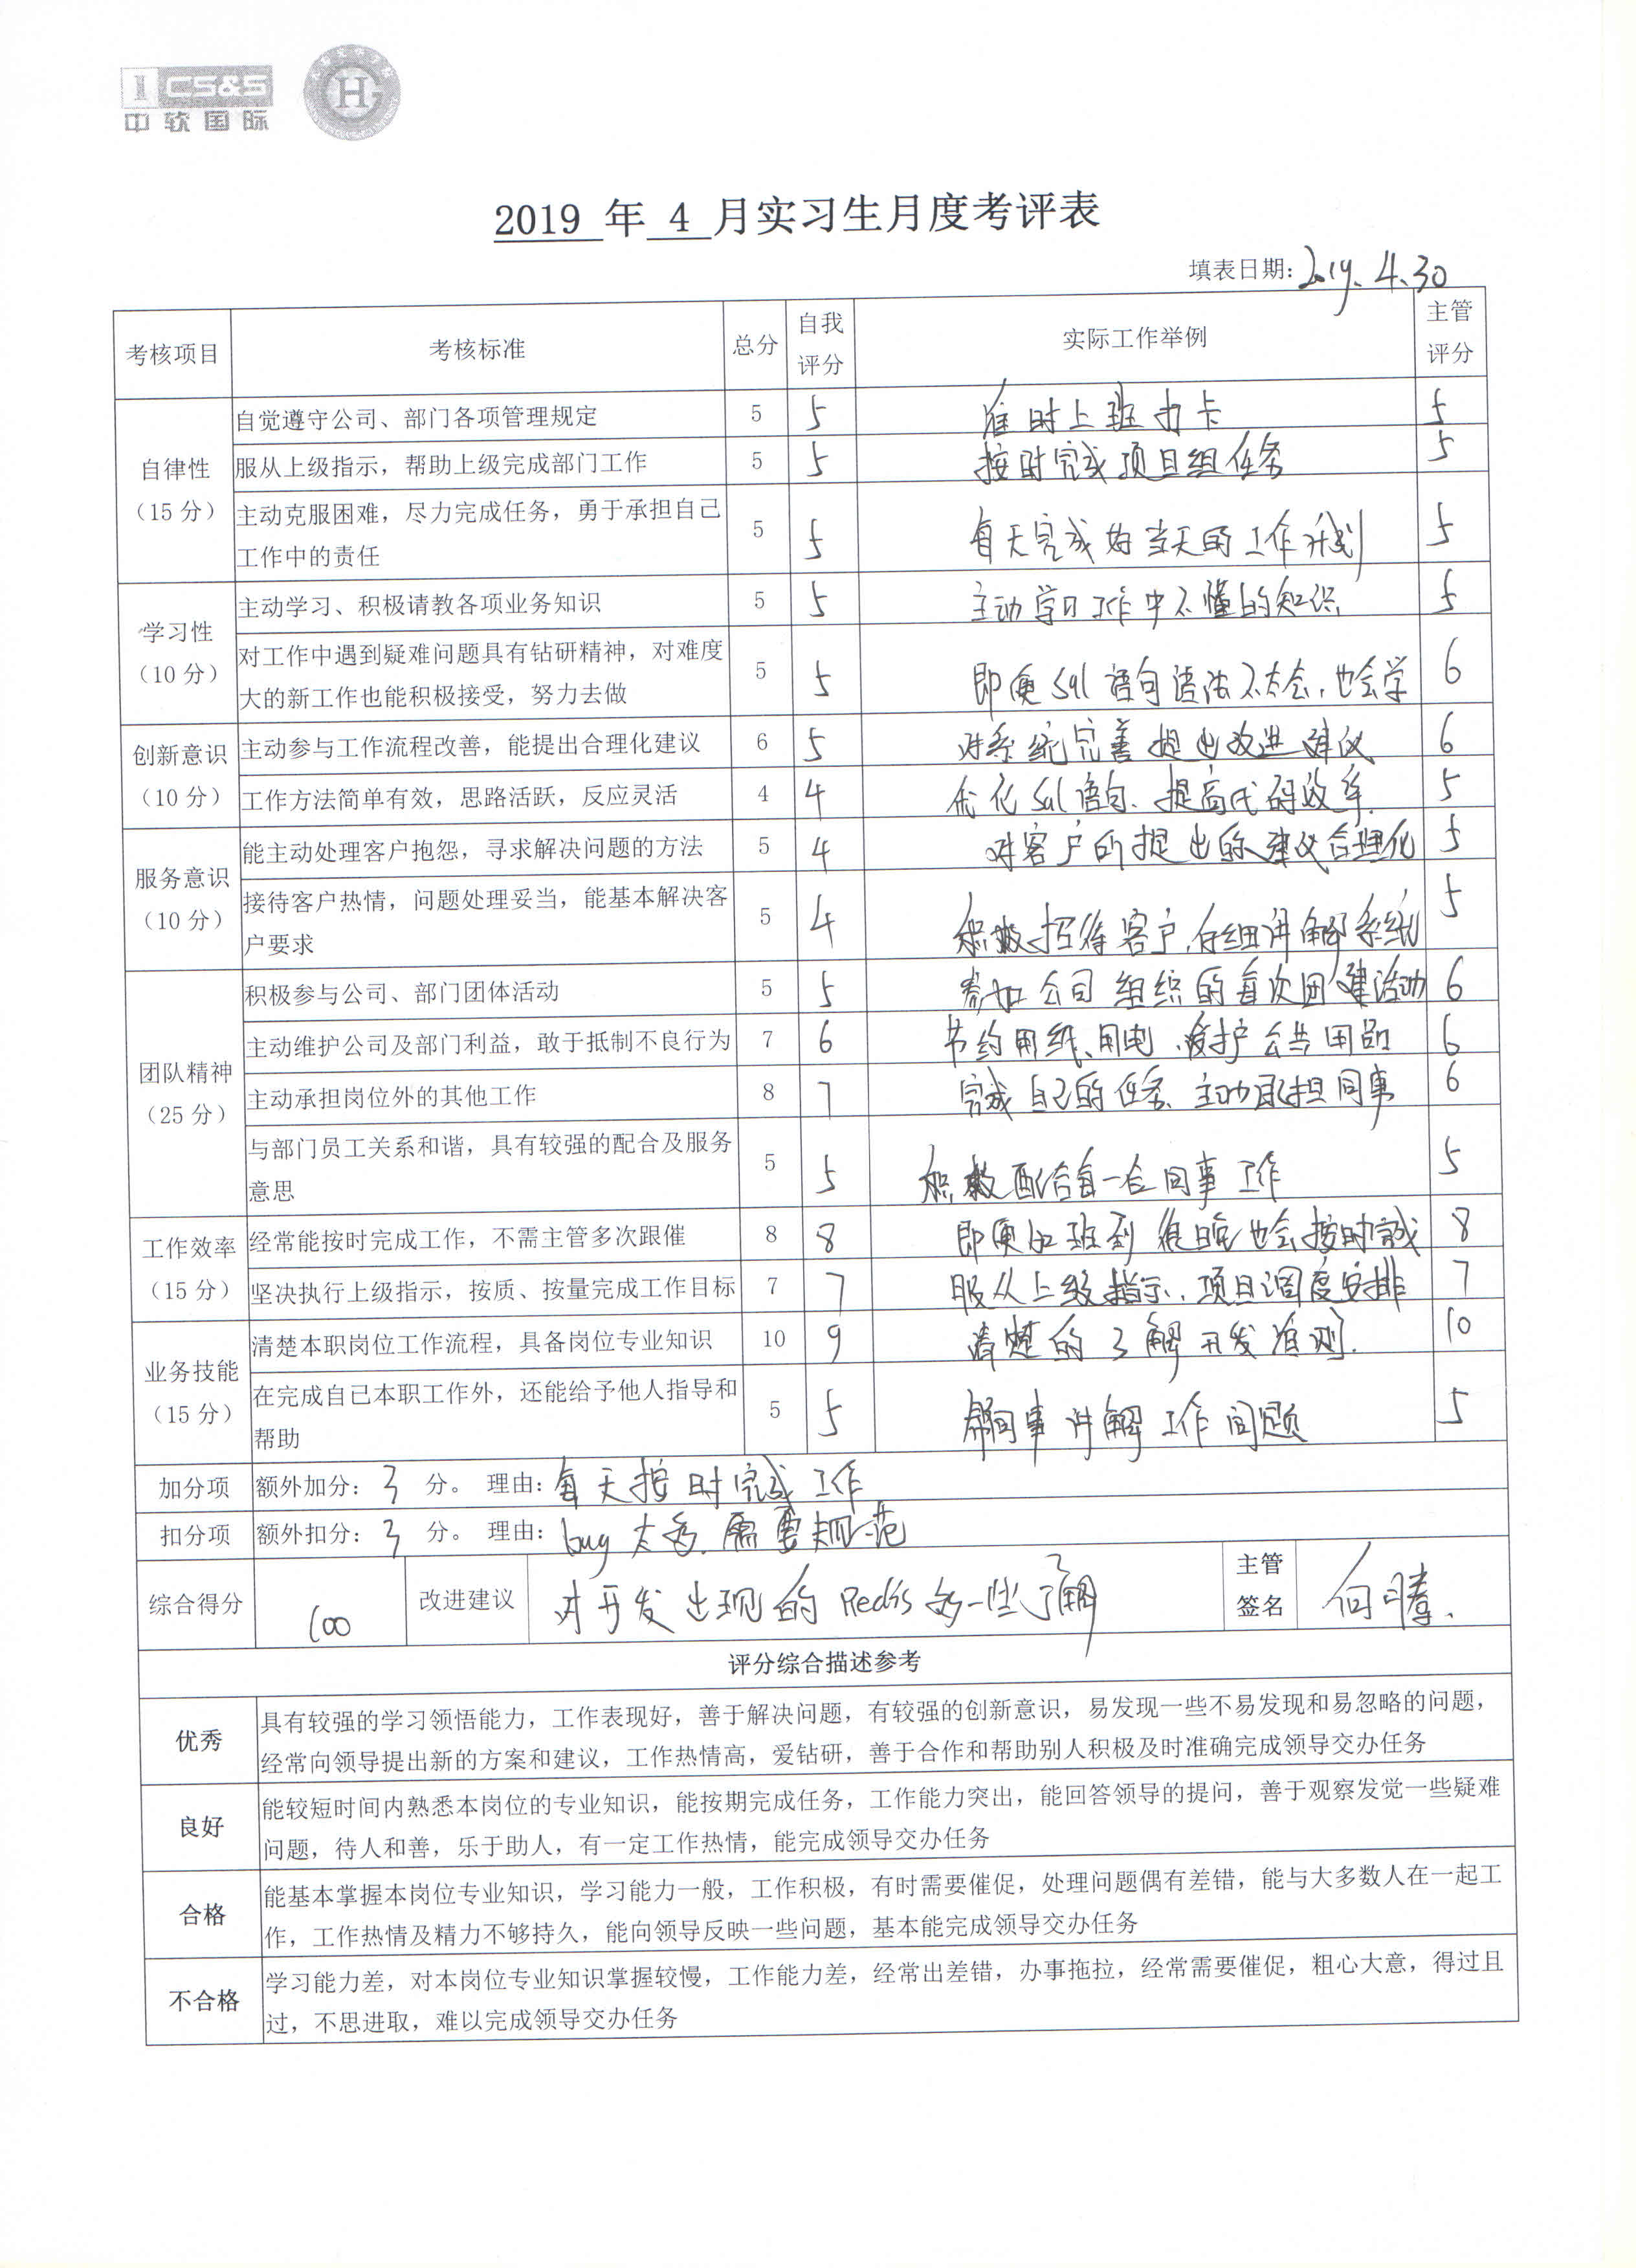 CS&S
中软国际
H
2019 年 4 月实习生月度考评表
填表日期：2019.4.30
考核项目 考核标准 总分 自我评分 实际工作举例 主管评分
自律性（15分）
自觉遵守公司、部门各项管理规定 5 5 准时上班打卡 5
服从上级指示，帮助上级完成部门工作 5 5 按时完成项目组任务 5
主动克服困难，尽力完成任务，勇于承担自己
工作中的责任 5 5 每天完成好当天的工作计划 5
学习性（10分）
主动学习、积极请教各项业务知识 5 5 主动学习工作中不懂的知识 5
对工作中遇到疑难问题具有钻研精神，对难度
大的新工作也能积极接受，努力去做 5 5 即便sql语句语法不太会，也会学 6
创新意识（10分）
主动参与工作流程改善，能提出合理化建议 6 5 对系统完善提出改进建议 6
工作方法简单有效，思路活跃，反应灵活 4 4 优化sql语句、提高代码效率. 5
服务意识（10分）
能主动处理客户抱怨，寻求解决问题的方法 5 4 对客户所提出的建议合理化 5
接待客户热情，问题处理妥当，能基本解决客
户要求 5 4 积极招待客户，仔细讲解系统 5
团队精神（25分）
积极参与公司、部门团体活动 5 5 参加公司组织的每次团建活动 6
主动维护公司及部门利益，敢于抵制不良行为 7 6 节约用纸、用电，爱护公共用品 6
主动承担岗位外的其他工作 8 7 完成自己的任务、主动承担同事 6
与部门员工关系和谐，具有较强的配合及服务
意思 5 5 积极配合每一名同事工作 5
工作效率（15分）
经常能按时完成工作，不需主管多次跟催 8 8 即便加班到很晚也会按时完成 8
坚决执行上级指示，按质、按量完成工作目标 7 7 服从上级指示，项目调度安排 7
业务技能（15分）
清楚本职岗位工作流程，具备岗位专业知识 10 9 清楚的了解开发准则. 10
在完成自己本职工作外，还能给予他人指导和
帮助 5 5 帮同事讲解工作问题 5
加分项 额外加分：3 分。 理由：每天按时完成工作
扣分项 额外扣分：3 分。 理由：bug太多，需要规范
综合得分 100 改进建议 对开发出现的Redis多一些了解 主管签名 何
评分综合描述参考
优秀
具有较强的学习领悟能力，工作表现好，善于解决问题，有较强的创新意识，易发现一些不易发现和易忽略的问题，
经常向领导提出新的方案和建议，工作热情高，爱钻研，善于合作和帮助别人积极及时准确完成领导交办任务
良好
能较短时间内熟悉本岗位的专业知识，能按期完成任务，工作能力突出，能回答领导的提问，善于观察发觉一些疑难
问题，待人和善，乐于助人，有一定工作热情，能完成领导交办任务
合格
能基本掌握本岗位专业知识，学习能力一般，工作积极，有时需要催促，处理问题偶有差错，能与大多数人在一起工
作，工作热情及精力不够持久，能向领导反映一些问题，基本能完成领导交办任务
不合格
学习能力差，对本岗位专业知识掌握较慢，工作能力差，经常出差错，办事拖拉，经常需要催促，粗心大意，得过且
过，不思进取，难以完成领导交办任务